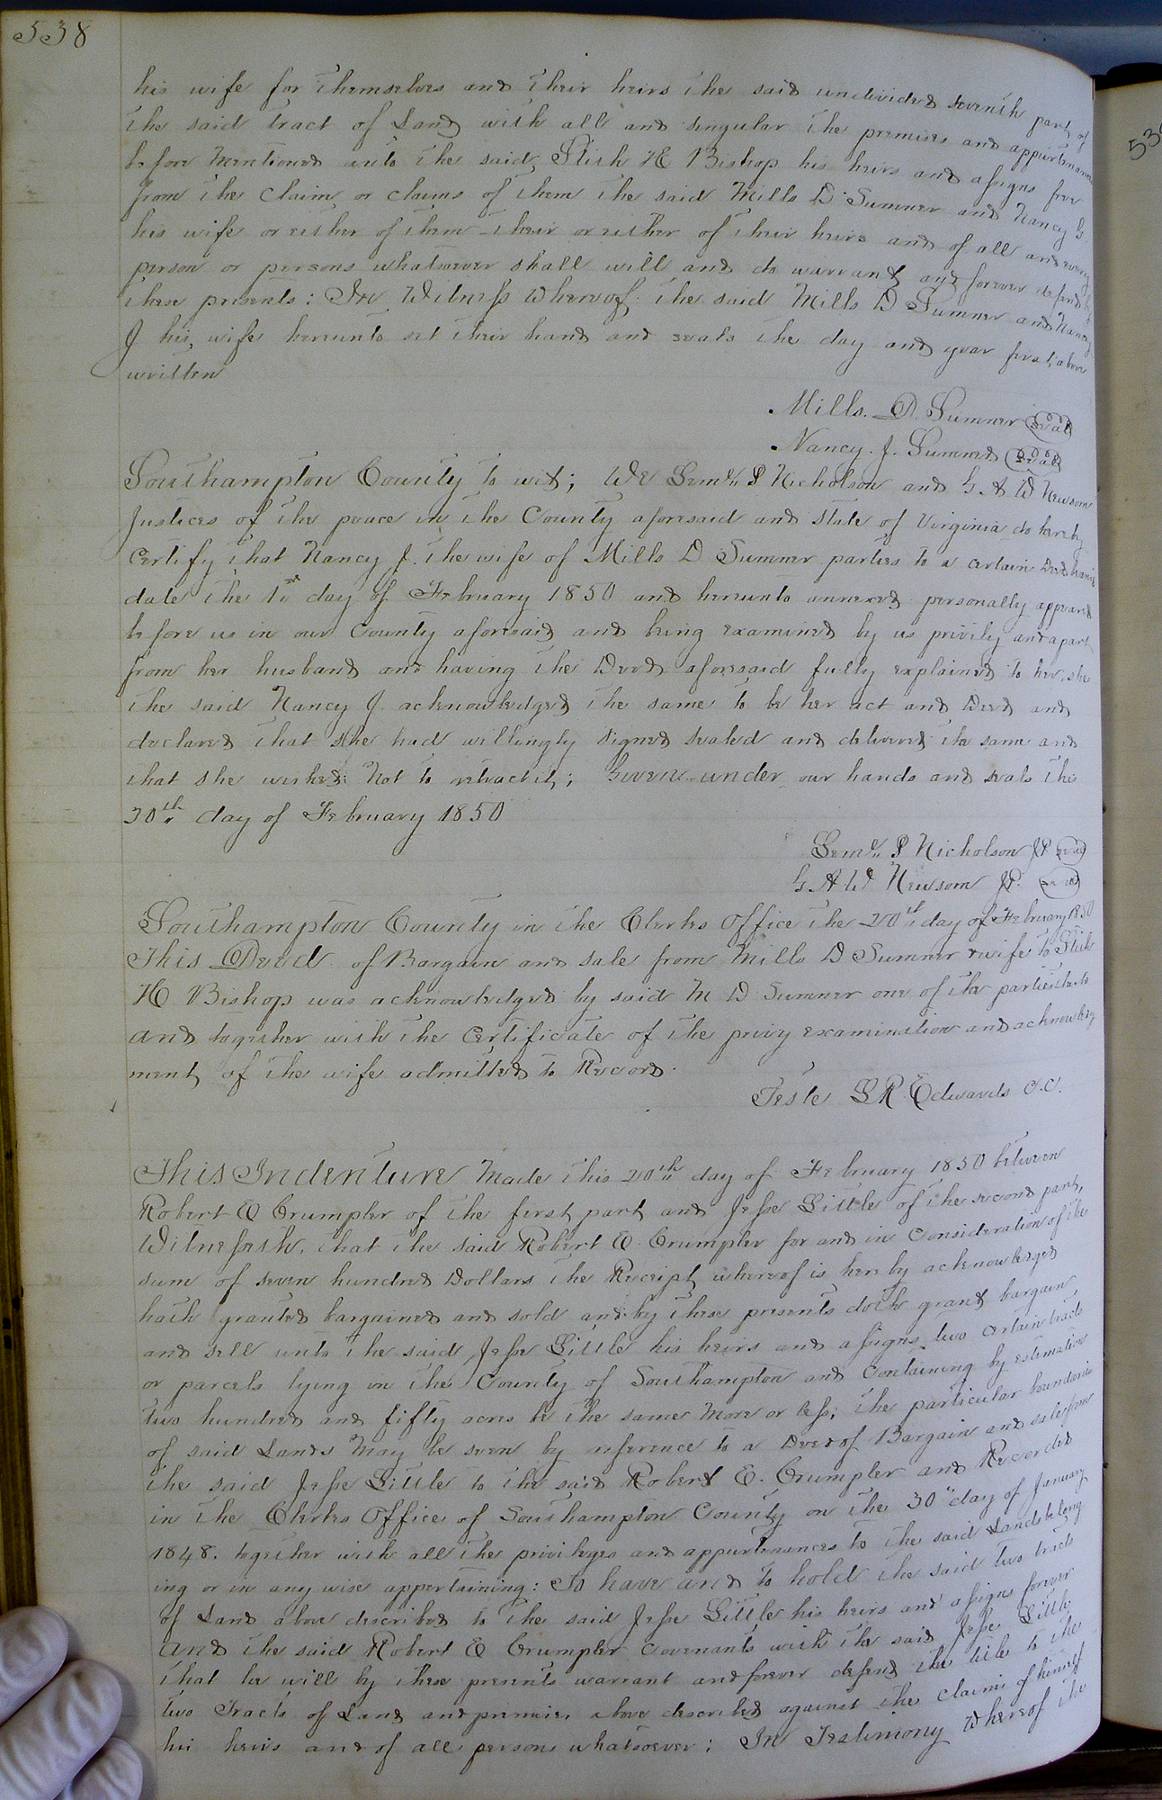 538
his wife for themselves and their heirs the said undivided seventh part of
the said tract of Land with all and singular the premises and appurtenances
before mentioned unto the said Stith H Bishop his heirs and assigns free
from the Claim or claims of them the said Mills D Sumner and Nancy J
his wife or either of them their or either of their heirs and of all and every
person or persons whatsoever shall will and do warrant and forever defend by
these presents: In Witness Whereof the said Mills D Sumner and Nancy
J his wife hereunto set their hand and seals the day and year first above
written
Mills. D. Sumner Seal
Nancy. J. Sumner Seal
Southampton County to wit; We Jno P Nicholson and G A W Newsom
Justices of the peace in the County aforesaid and State of Virginia do hereby
Certify that Nancy J. the wife of Mills D Sumner parties to a certain Deed bearing
date the 1st day of February 1850 and hereunto annexed personally appeared
before us in our County aforesaid and being examined by us privily and apart
from her husband and having the Deed aforesaid fully explained to her, she
the said Nancy J. acknowledged the same to be her act and Deed and
declared that she had willingly signed sealed and delivered the same and
that she wished not to retract it; Given under our hands and seals this
20th day of February 1850
P Nicholson JP Seal
G A W Newsom JP. Seal
Southampton County in the Clerks Office the 20th day of February 1850
This Deed of Bargain and sale from Mills D Sumner & wife to Stith
H Bishop was acknowledged by said M D Sumner one of the parties thereto
and together with the Certificate of the privy examination and acknowledg
ment of the wife admitted to Record.
Teste L R Edwards C.C.
This Indenture Made this 20th day of February 1850 between
Robert E Crumpler of the first part and Jesse Little of the second part,
Witnesseth, that the said Robert E. Crumpler for and in Consideration of the
sum of seven hundred Dollars the Receipt whereof is hereby acknowledged
hath granted bargained and sold and by these presents doth grant bargain
and sell unto the said Jesse Little his heirs and assigns two certain tracts
or parcels lying in the County of Southampton and Containing by estimation
two hundred and fifty acres be the same More or less; the particular boundaries
of said Lands May be seen by reference to a Deed of Bargain and sale from
the said Jesse Little to the said Robert E. Crumpler and Recorded
in the Clerks Office of Southampton County on the 30th day of January
1848. together with all the privileges and appurtenances to the said Lands belong
ing or in any wise appertaining: To have and to hold the said two tracts
of Land above described to the said Jesse Little his heirs and assigns forever
and the said Robert E Crumpler Covenants with the said Jesse Little
that he will by these presents warrant and forever defend the title to the
two Tracts of Land and premises above described against the Claims of himself
his heirs and of all persons whatsoever: In Testimony Whereof the